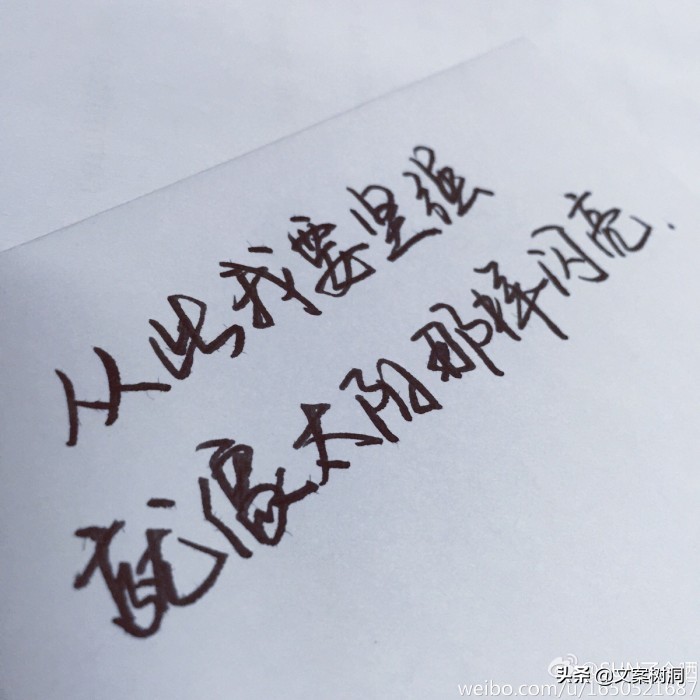 从此我要坚强
就像太阳那样闪亮.
头条 @文案树洞